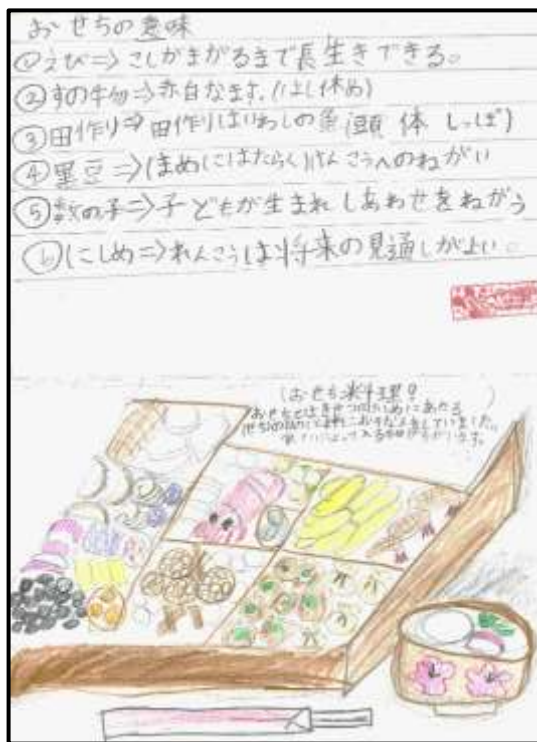 おせちの意味
①えび⇒こしがまがるまで長生きできる。
②すの牛勿⇒赤白なます。(はし休め)
③田作り⇒田作りはいわしの魚(頭 体 しっぽ)
④黒豆⇒(まめにはたらく)けんこうへのねがい
⑤数の子⇒子どもが生まれしあわせをねがう
⑥にしめ⇒れんこんは将来の見通しがよい。
(おせち料理?)
おせちとはきせつの